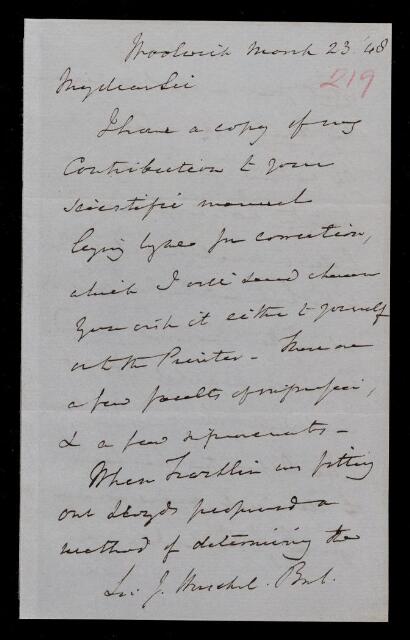 Woolwich March 23 '48
219
My dear Sir
I have a copy of my
Contribution to your
scientific manual
lying by me for correction,
which I will send when
you wish it either to yourself
or to the Printer - There are
a few faults of
& a few improvements -
When Franklin was fitting
out Lloyd proposed a
method of determining the
Sir J. Herschel. Bart.